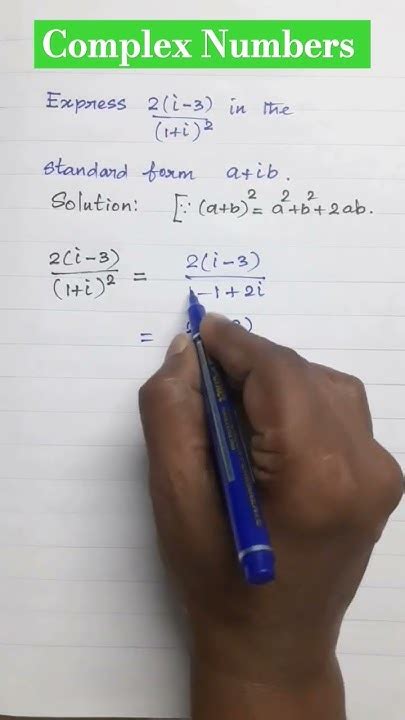 Complex Numbers
Express 2(i-3)/(1+i)² in the
standard form a+ib.
Solution: [∵ (a+b)² = a²+b²+2ab.
2(i-3)/(1+i)² = 2(i-3)/1-1+2i
=